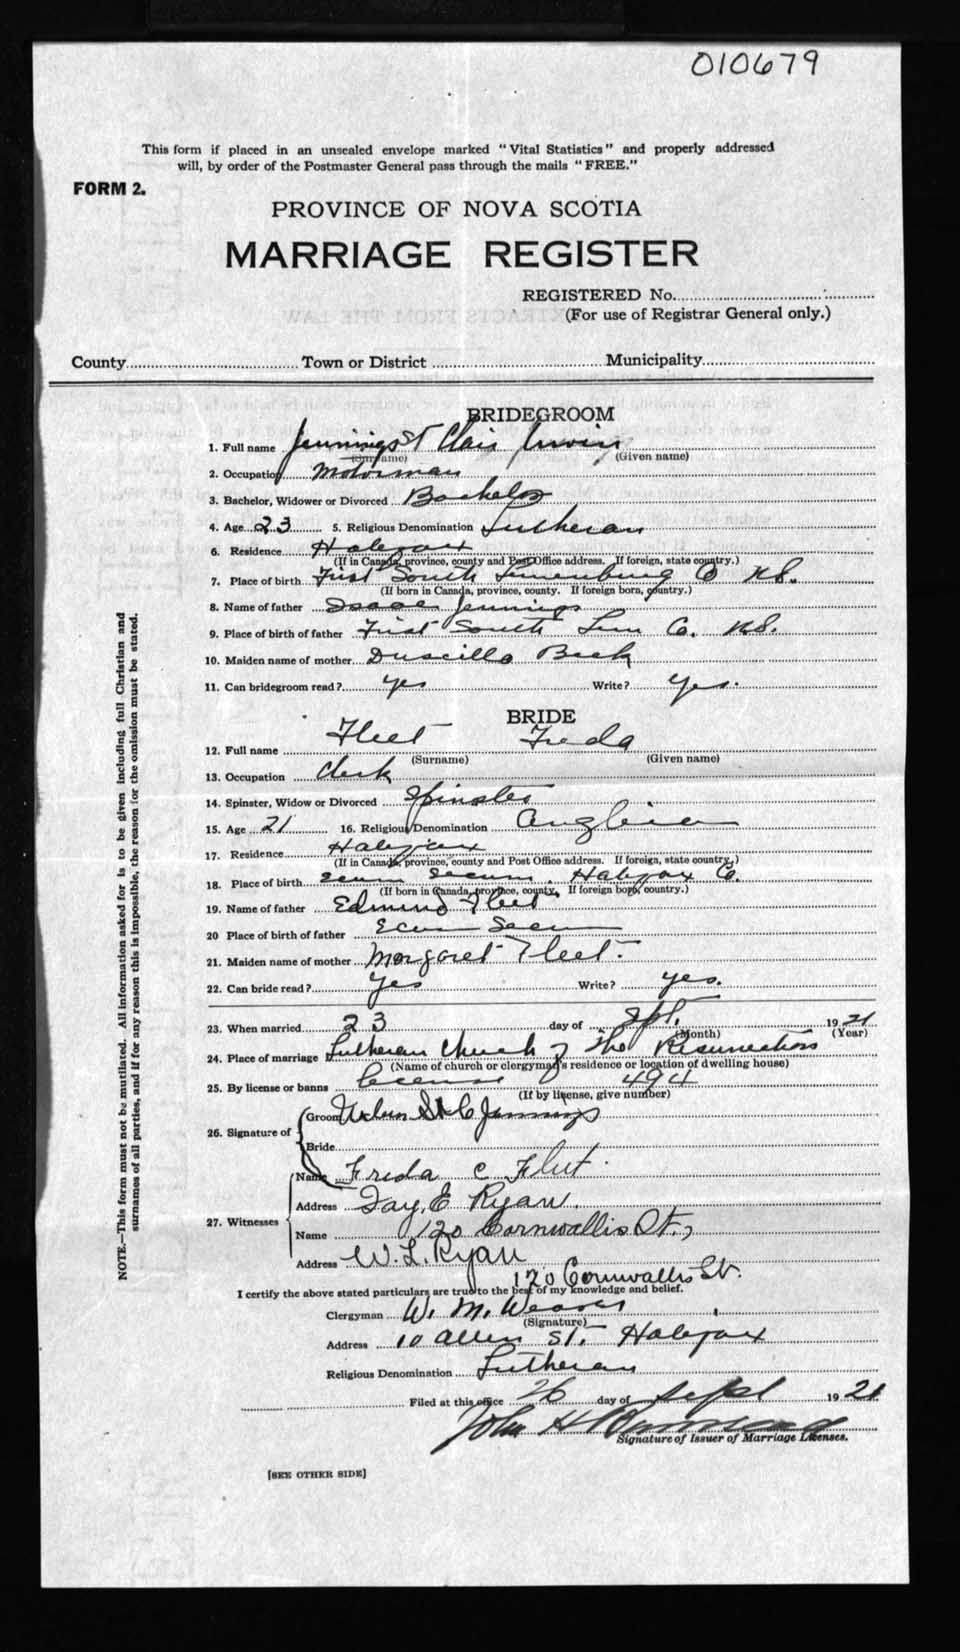 010679
This form if placed in an unsealed envelope marked "Vital Statistics" and properly addressed
will, by order of the Postmaster General pass through the mails "FREE."
FORM 2.
PROVINCE OF NOVA SCOTIA
MARRIAGE REGISTER
REGISTERED No.
(For use of Registrar General only.)
County Town or District Municipality
BRIDEGROOM
1. Full name Jennings St Clair
(Surname) (Given name)
2. Occupation Motorman
3. Bachelor, Widower or Divorced Bachelor
4. Age 23 5. Religious Denomination Lutheran
6. Residence Halifax
(If in Canada, province, county and Post Office address. If foreign, state country.)
7. Place of birth First South Lunenburg Co N.S.
(If born in Canada, province, county. If foreign born, country.)
8. Name of father Isaac Jennings
9. Place of birth of father First South Lun Co. N.S.
10. Maiden name of mother Druscilla Beck
11. Can bridegroom read? yes Write? yes.
BRIDE
12. Full name Fleet Freda
(Surname) (Given name)
13. Occupation Clerk
14. Spinster, Widow or Divorced Spinster
15. Age 21 16. Religious Denomination Anglican
17. Residence Halifax
(If in Canada, province, county and Post Office address. If foreign, state country.)
18. Place of birth Ecum Secum. Halifax Co.
(If born in Canada, province, county. If foreign born, country.)
19. Name of father Edmund Fleet
20 Place of birth of father Ecum Secum
21. Maiden name of mother Margaret Fleet.
22. Can bride read? Yes Write? yes.
23. When married 23 day of Spt. 1921
(Month) (Year)
24. Place of marriage Lutheran Church of The Resurrection
(Name of church or clergyman's residence or location of dwelling house)
25. By license or banns license 494
(If by license, give number)
26. Signature of
Groom St C Jennings
Bride
Name Freda C Fleet.
27. Witnesses
Address Fay. E Ryan.
Name 120 Cornwallis St.,
Address W. L. Ryan
120 Cornwallis St.
I certify the above stated particulars are true to the best of my knowledge and belief.
Clergyman W. M. Weaver
(Signature)
Address 10 Allen St. Halifax
Religious Denomination Lutheran
Filed at this office 26 day of Sept 1921
John H
Signature of Issuer of Marriage Licenses.
[SEE OTHER SIDE]
NOTE.—This form must not be mutilated. All information asked for is to be given including full Christian and
surnames of all parties, and if for any reason this is impossible, the reason for the omission must be stated.